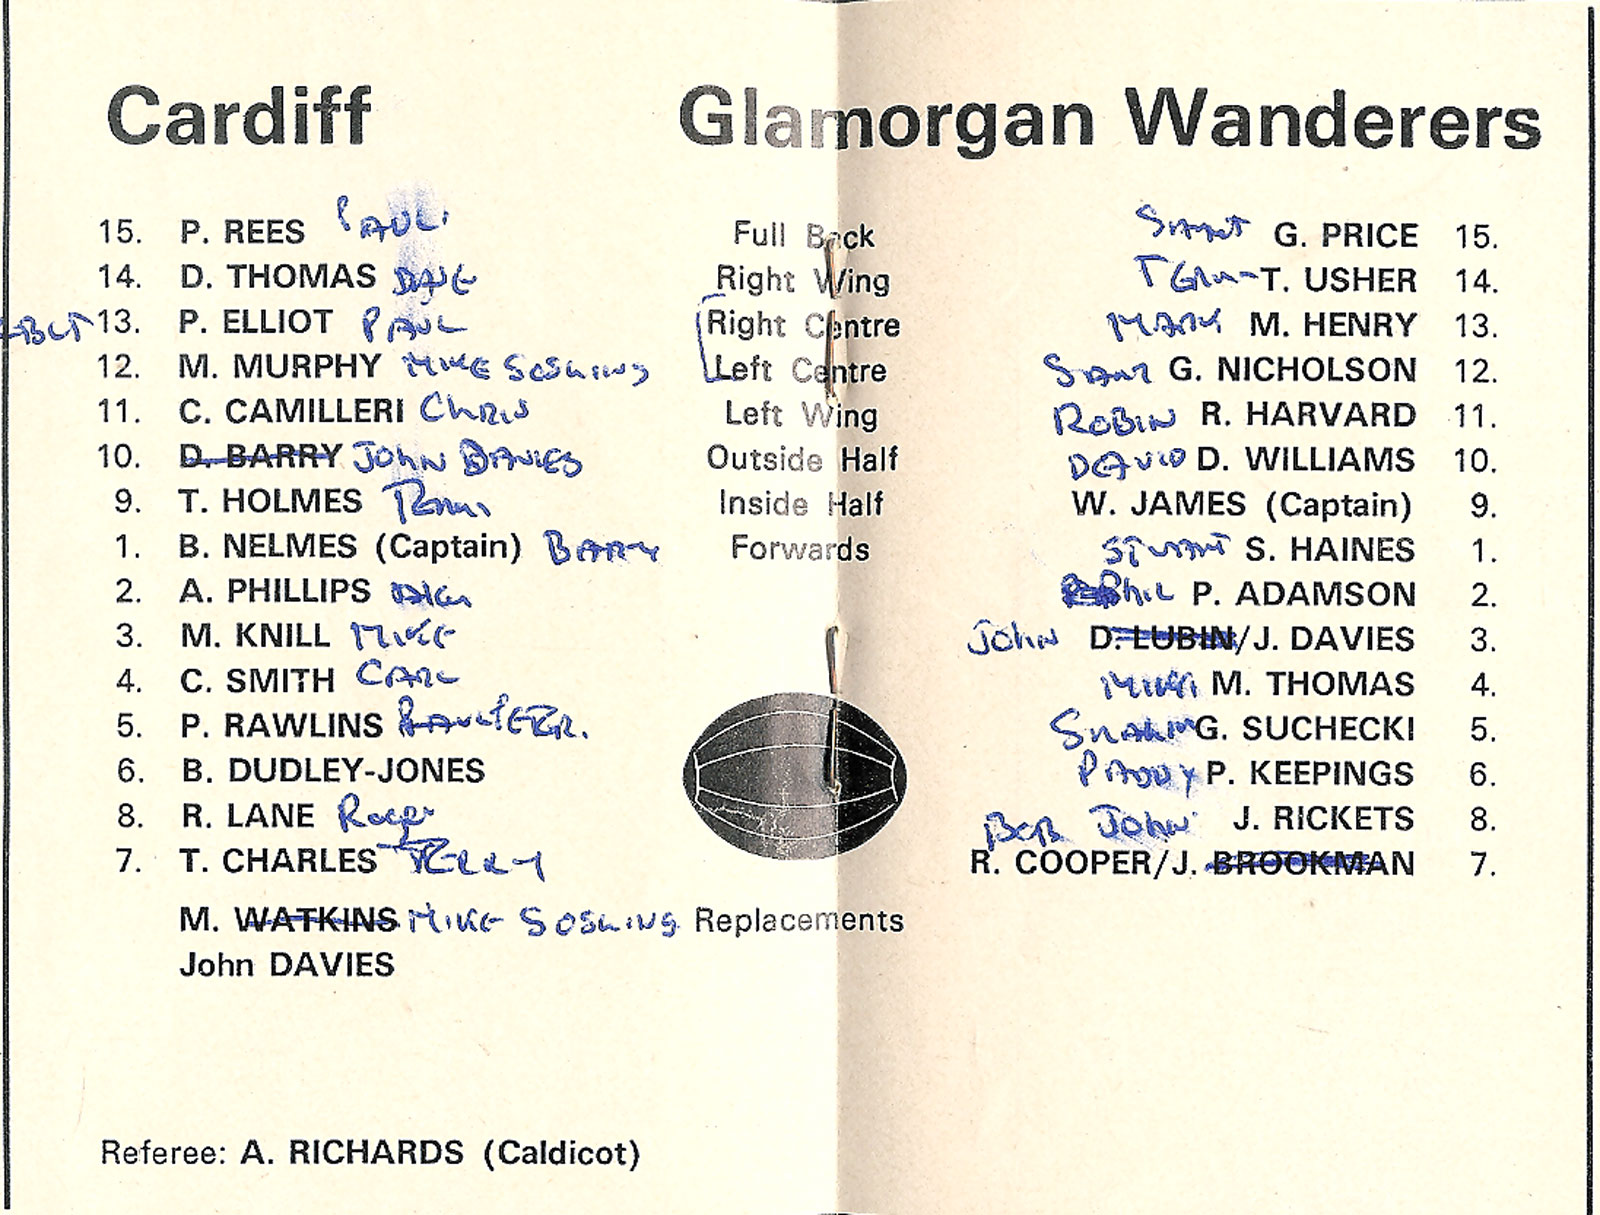 Cardiff Glamorgan Wanderers
15. P. REES PAUL Full Back G. PRICE 15.
14. D. THOMAS DAVE Right Wing T. USHER 14.
13. P. ELLIOT PAUL Right Centre MARK M. HENRY 13.
12. M. MURPHY MIKE GOSLING Left Centre G. NICHOLSON 12.
11. C. CAMILLERI CHRIS Left Wing ROBIN R. HARVARD 11.
10. D. BARRY JOHN DAVIES Outside Half DAVID D. WILLIAMS 10.
9. T. HOLMES Inside Half W. JAMES (Captain) 9.
1. B. NELMES (Captain) BARRY Forwards STUART S. HAINES 1.
2. A. PHILLIPS PHIL P. ADAMSON 2.
3. M. KNILL MIKE JOHN D. LUBIN/J. DAVIES 3.
4. C. SMITH CARL M. THOMAS 4.
5. P. RAWLINS G. SUCHECKI 5.
6. B. DUDLEY-JONES PADDY P. KEEPINGS 6.
8. R. LANE Roger J. RICKETS 8.
BOB JOHN
7. T. CHARLES TERRY R. COOPER/J. BROOKMAN 7.
M. WATKINS MIKE GOSLING Replacements
John DAVIES
Referee: A. RICHARDS (Caldicot)